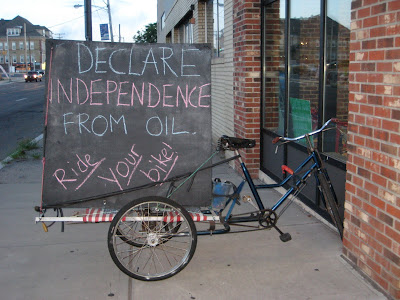 DECLARE
INDEPENDENCE
FROM OIL.
Ride your bike!